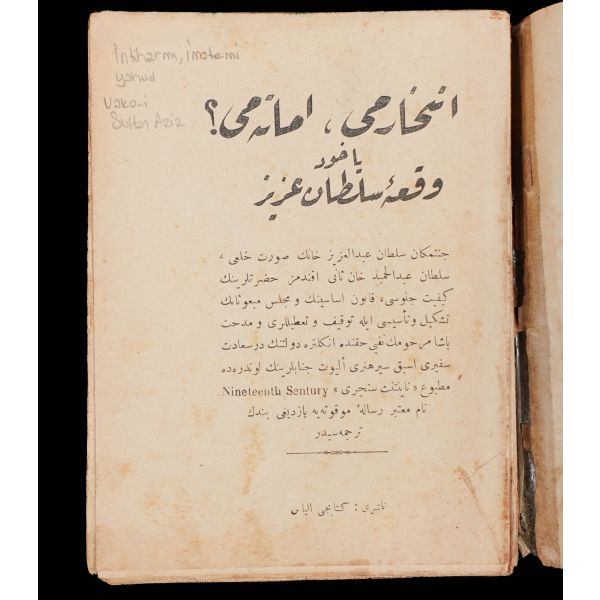 İntiharmı, İmatemi
yahud
Vakai
Sultan Aziz
انتحارمی ، اماتەمی ؟
یاخود
وقعۀ سلطان عزیز
جنتمكان سلطان عبدالعزیز خانك صورت خلعی ،
سلطان عبدالحمید خان ثانی افندمز حضرتلرینك
كیفیت جلوسی، قانون اساسینك و مجلس مبعوثانك
تشكیل و تأسیسی ایله توقیف و تعطیللری و مدحت
پاشا مرحومك نفیی حقنده انكلتره دولتنك درسعادت
سفیری اسبق سیرهنری الیوت جنابلرینك لوندره‌ده
مطبوع « ناینتنث سنچری » Nineteenth Sentury
نام معتبر رسالۀ موقوته‌یه یازدیغی بندك
ترجمه‌سیدر
ناشری : كتابجی الیاس